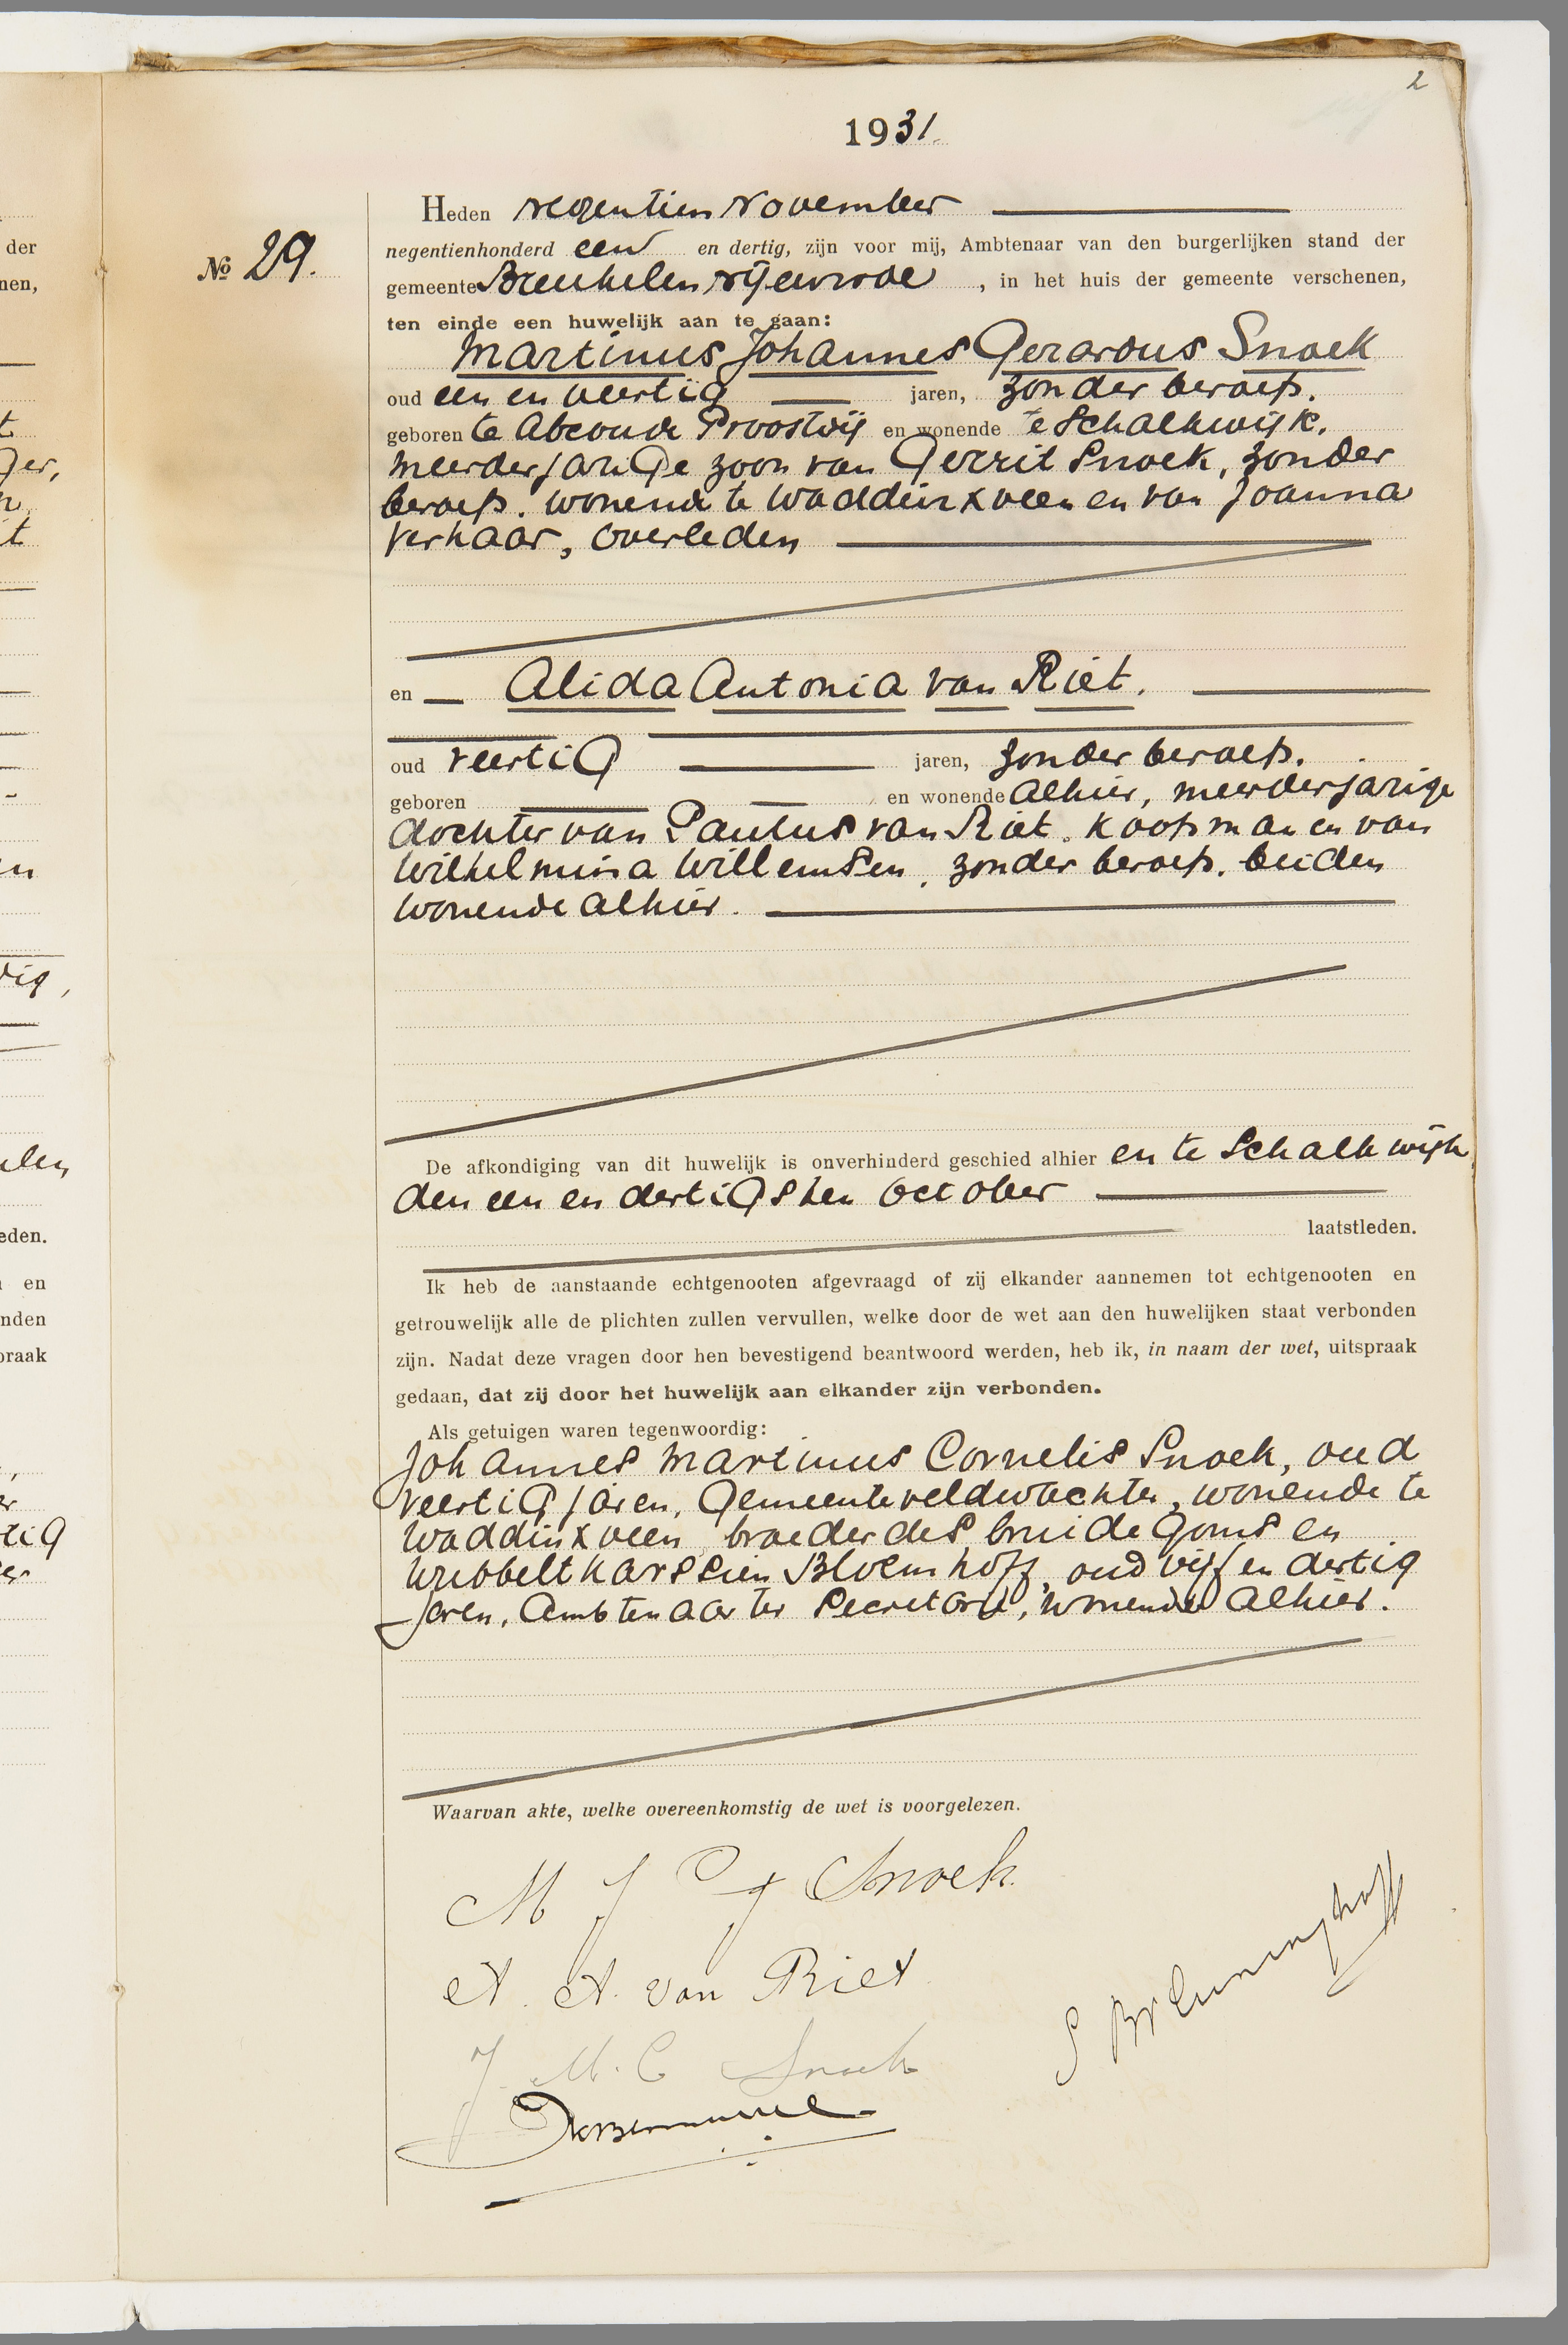 2
1931.
Heden negentien November
No 29.
negentienhonderd een en dertig, zijn voor mij, Ambtenaar van den burgerlijken stand der
gemeente Breukelen Nijenrode, in het huis der gemeente verschenen,
ten einde een huwelijk aan te gaan:
Martinus Johannes Gerardus Snoek
oud een en veertig jaren, zonder beroep.
geboren te Abcoude Proostdij en wonende te Schalkwijk.
meerderjarige zoon van Gerrit Snoek, zonder
beroep. wonende te Waddinxveen en van Joanna
Verhaar, overleden
en Alida Antonia van Riet.
oud veertig jaren, zonder beroep.
geboren en wonende Alhier, meerderjarige
dochter van Paulus van Riet. koopman en van
Wilhelmina Willemsen, zonder beroep. beiden
wonende alhier.
De afkondiging van dit huwelijk is onverhinderd geschied alhier en te Schalkwijk
den een en dertigsten October
laatstleden.
Ik heb de aanstaande echtgenooten afgevraagd of zij elkander aannemen tot echtgenooten en
getrouwelijk alle de plichten zullen vervullen, welke door de wet aan den huwelijken staat verbonden
zijn. Nadat deze vragen door hen bevestigend beantwoord werden, heb ik, in naam der wet, uitspraak
gedaan, dat zij door het huwelijk aan elkander zijn verbonden.
Als getuigen waren tegenwoordig:
Johannes Martinus Cornelis Snoek, oud
veertig jaren, Gemeenteveldwachter, wonende te
Waddinxveen broeder des bruidegoms en
Wubbelt Karssien Bloemhoff, oud vijf en dertig
jaren, Ambtenaar ter Secretarie, wonende Alhier.
Waarvan akte, welke overeenkomstig de wet is voorgelezen.
M J G Snoek
A. A. van Riet
J. M. C Snoek